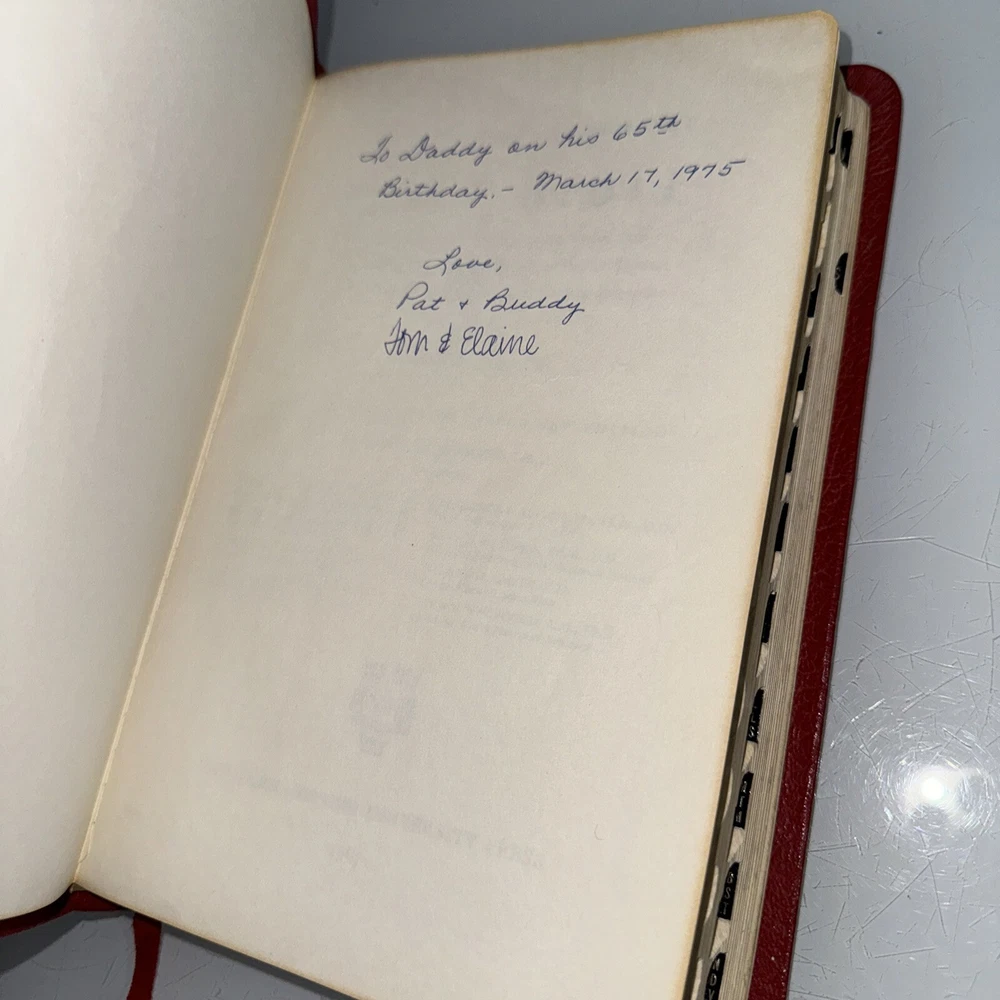 To Daddy on his 65th
Birthday. – March 17, 1975
Love,
Pat + Buddy
Tom & Elaine